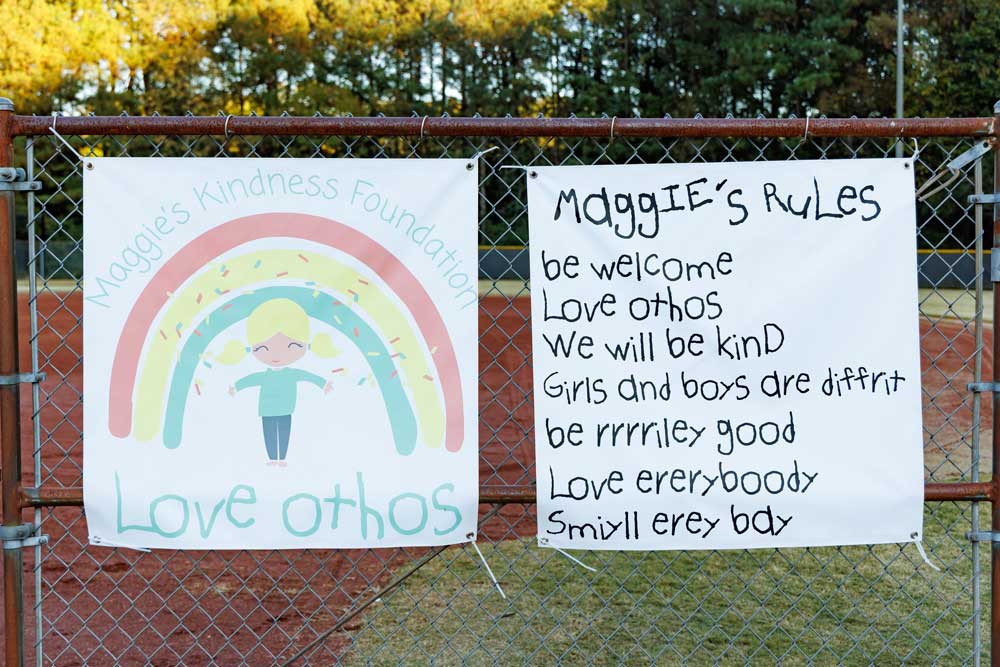 Maggie's Kindness Foundation
Love othos
MaggIE's RuLes
be welcome
Love othos
We will be kinD
Girls and boys are diffrit
be rrrriley good
Love ereryboody
Smiyll erey bdy